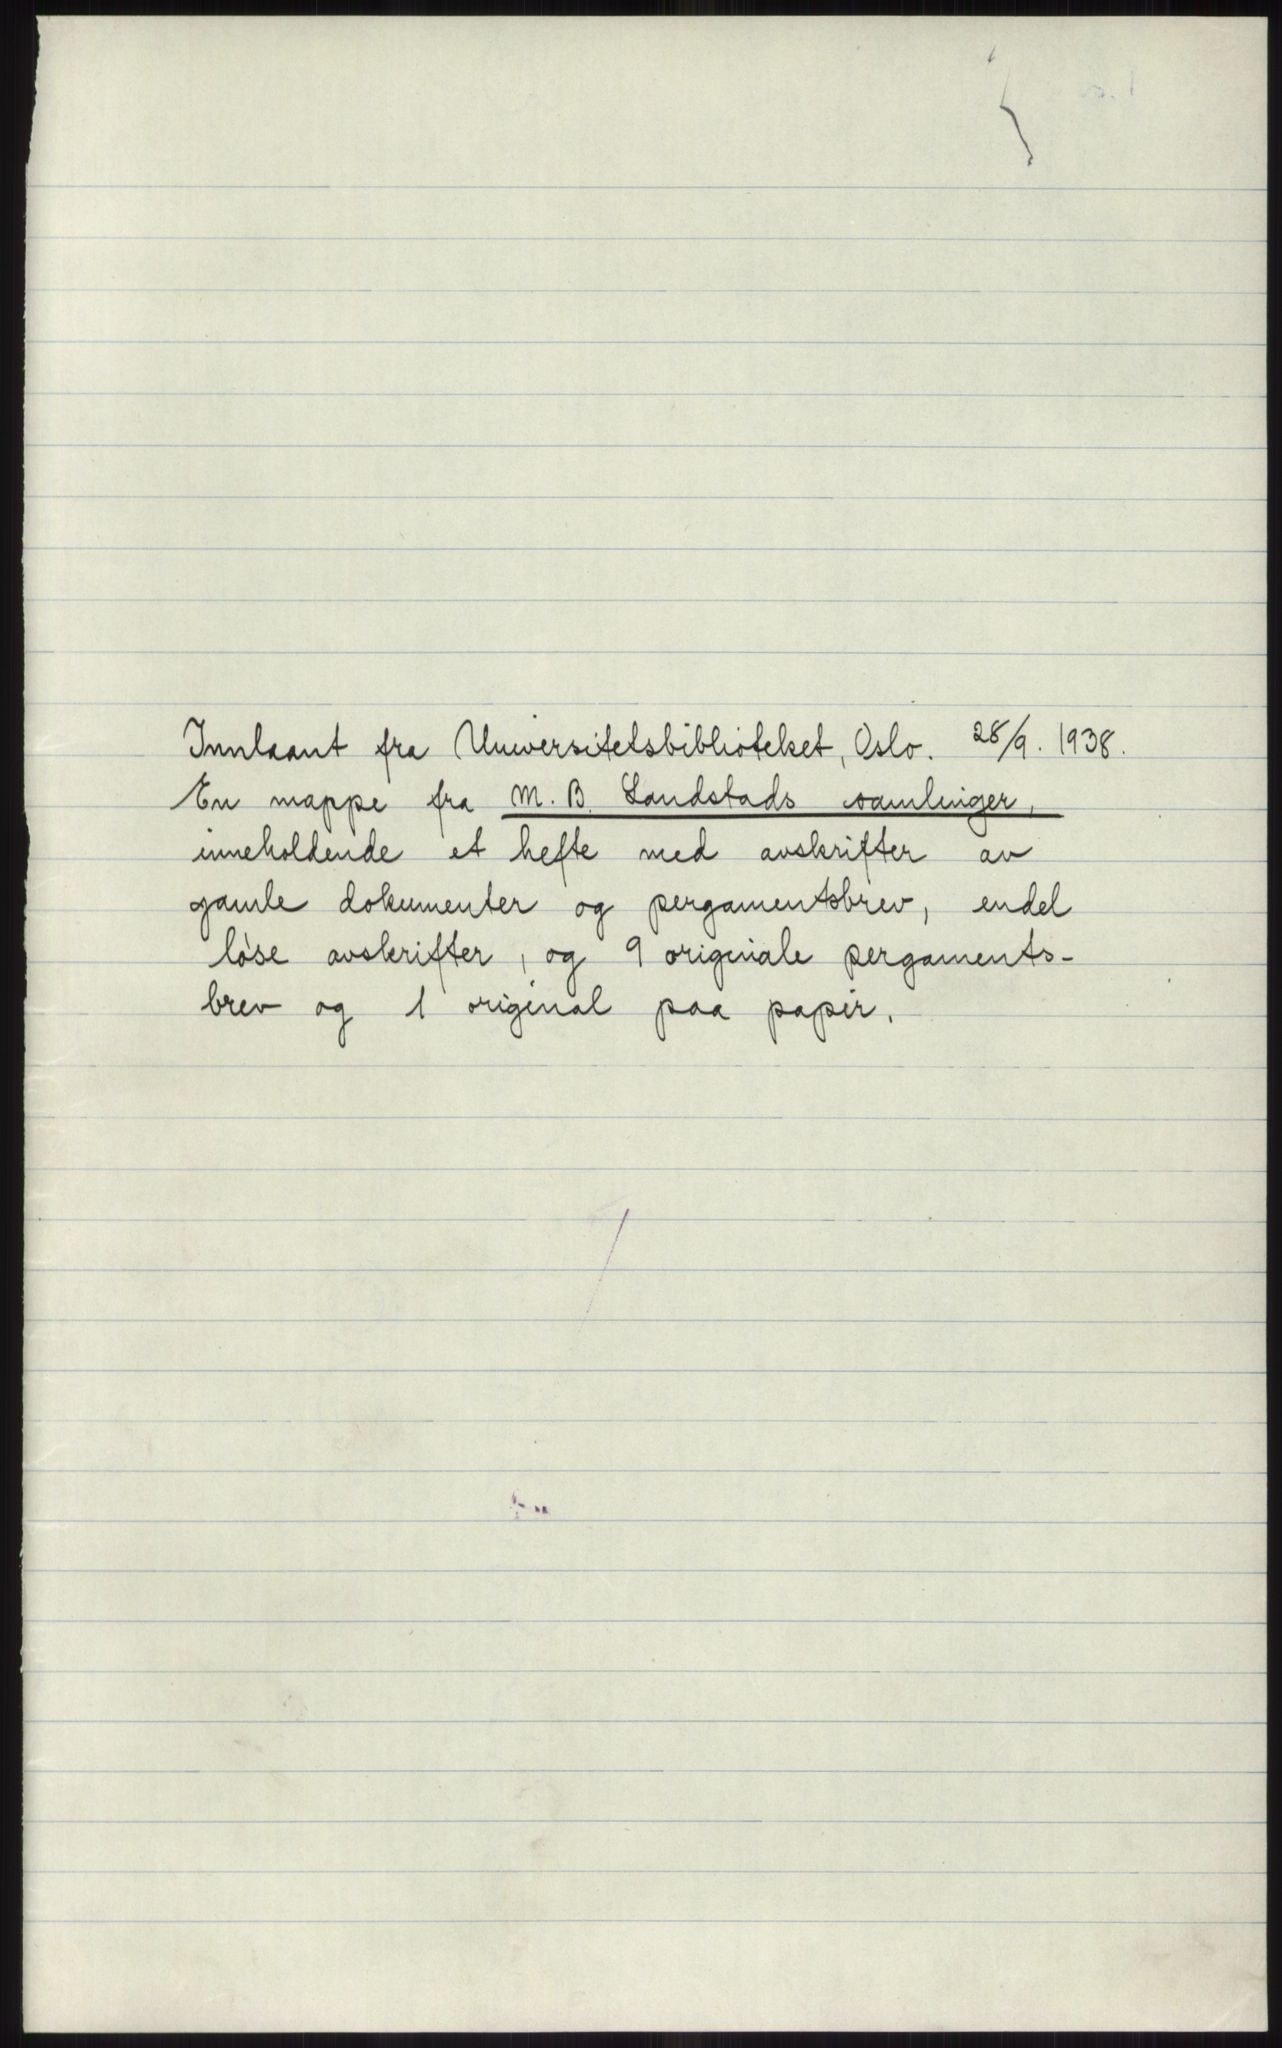 Innlaant fra Universitetsbiblioteket, Oslo. 28/9. 1938.
En mappe fra M. B. Landstads samlinger,
inneholdende et hefte med avskrifter av
gamle dokumenter og pergamentsbrev, endel
løse avskrifter, og 9 originale pergaments-
brev og 1 original paa papir.